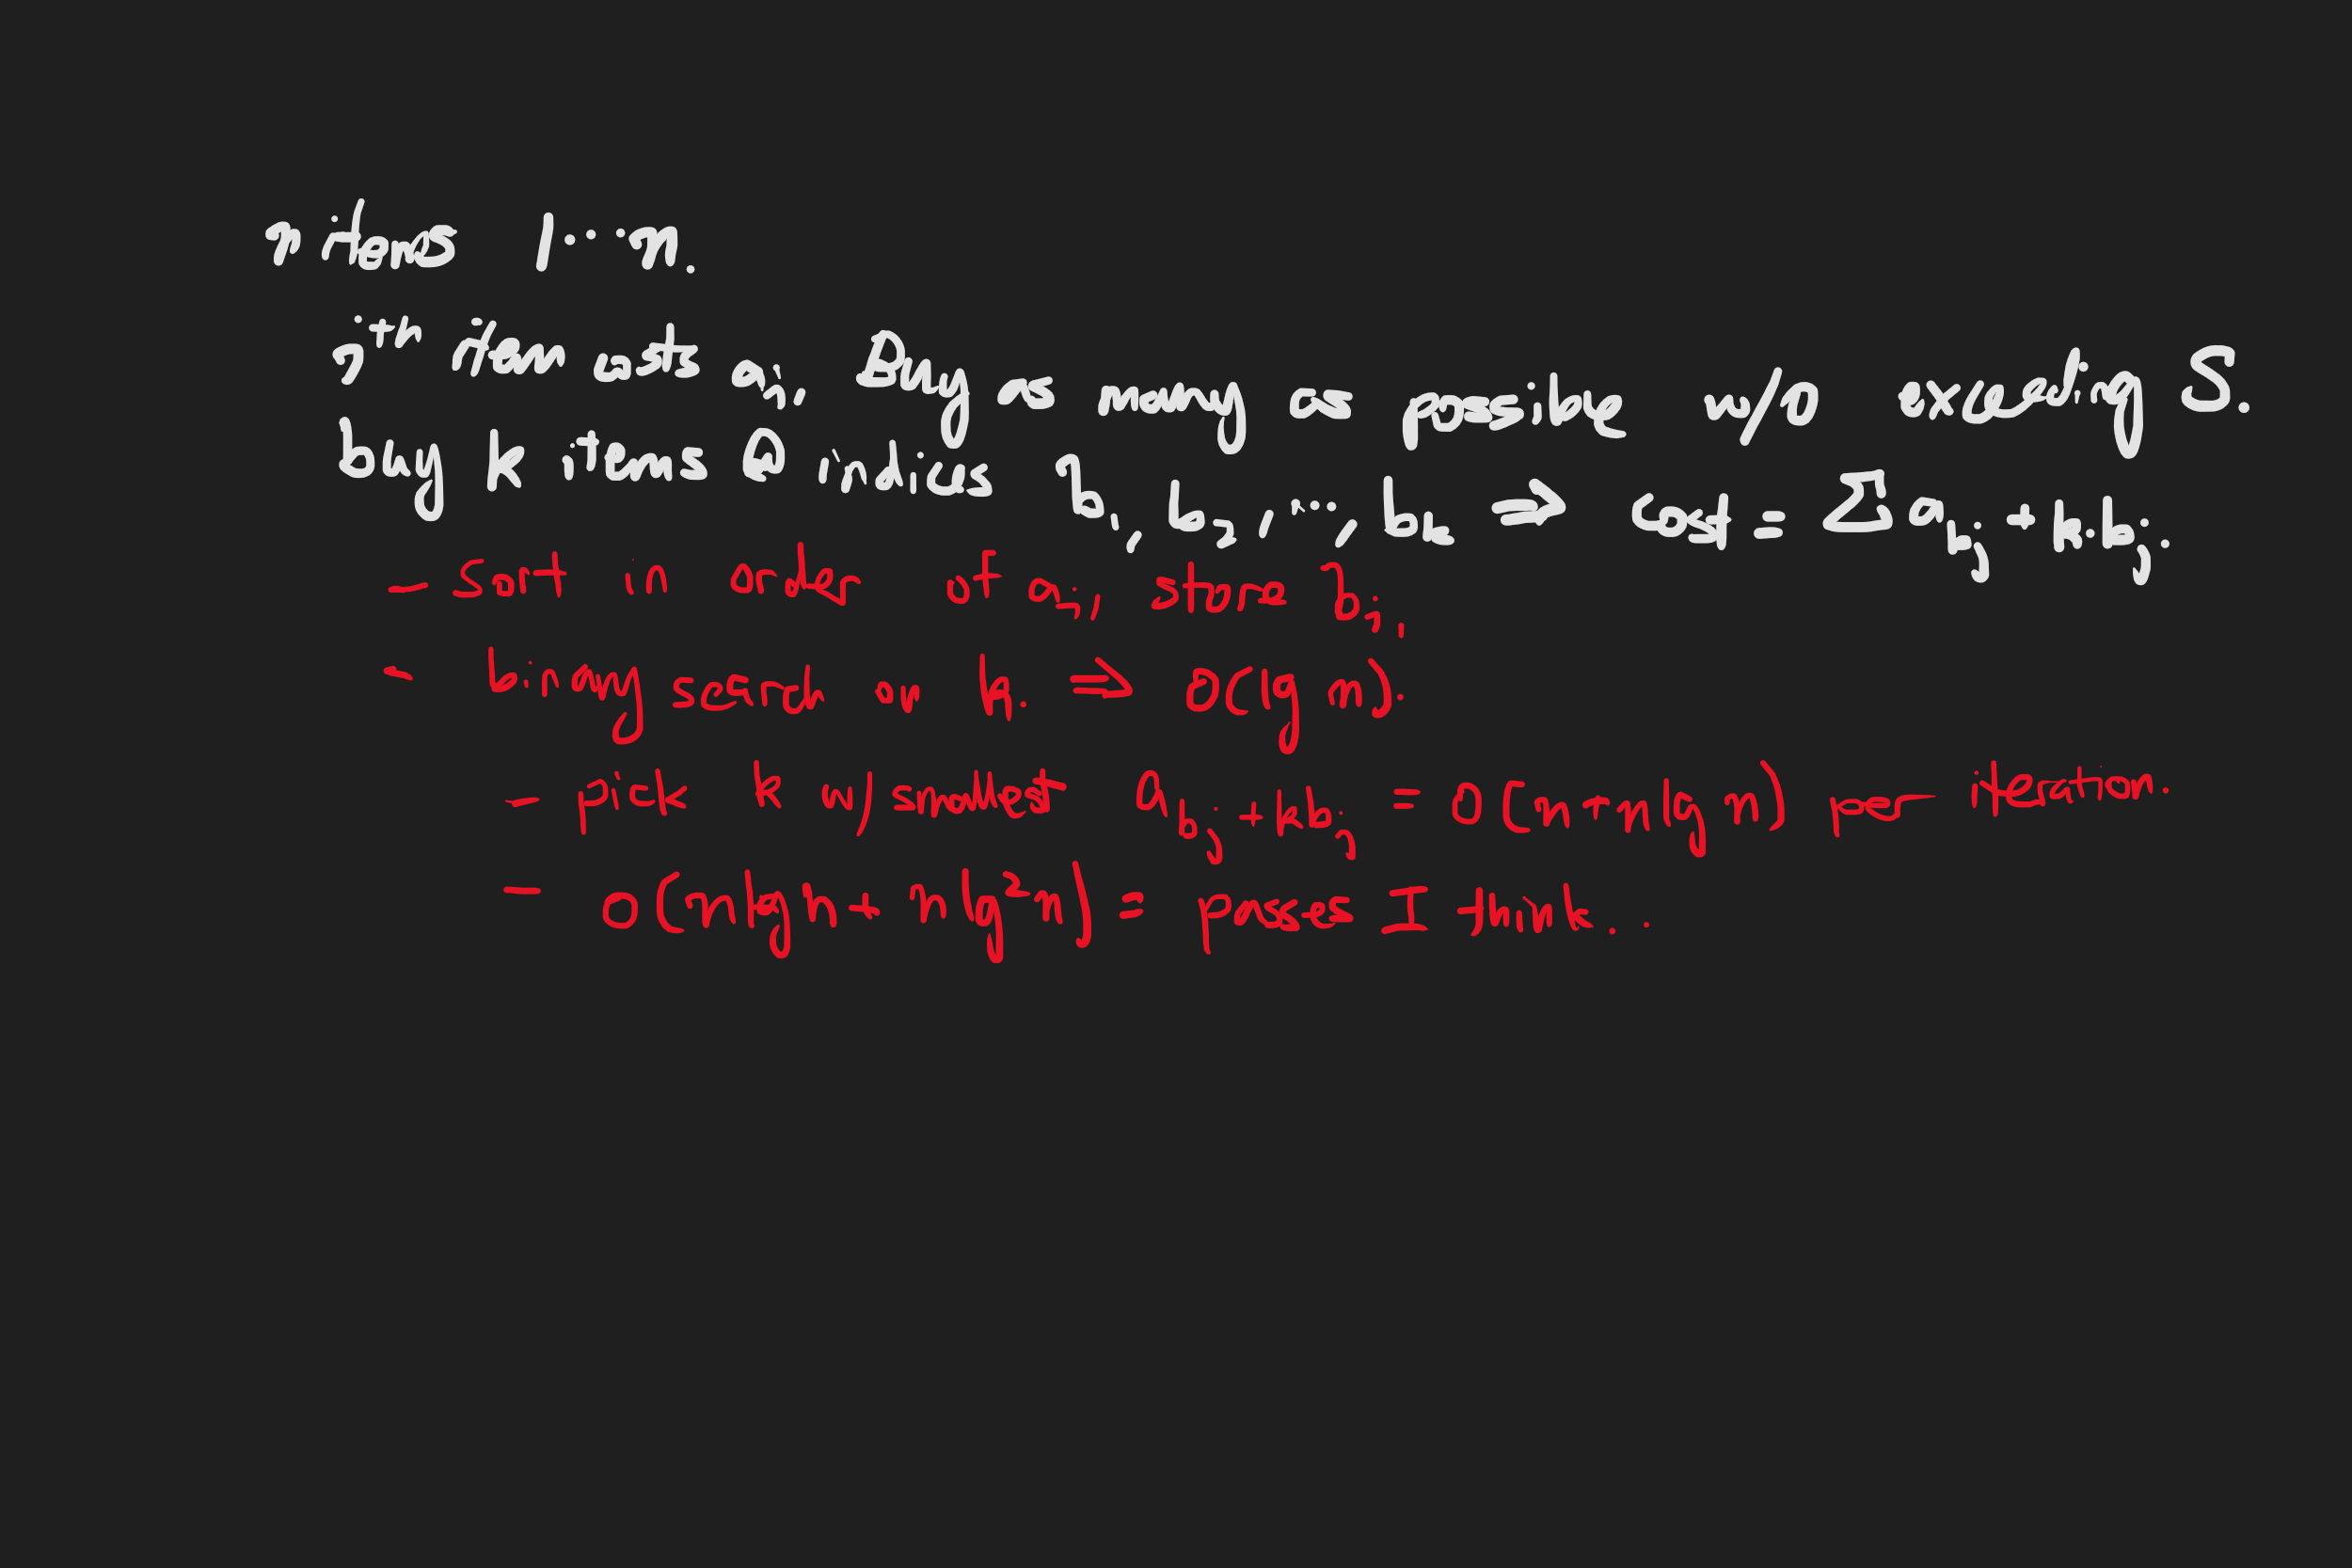 n items 1...n.
ith item costs aᵢ, Buy as many as possible w/o exceeding S.
buy k items @ indices b₁, b₂, ..., bₖ => Cost = Σ a_bⱼ + k·bⱼ.
- sort in order of aᵢ, store bᵢ,
- binary search on k. => O(lg n).
- pick k w/ smallest a_bⱼ + kbⱼ = O(n+nlgn) per iteration.
- O(nlgn + nlg²n) = passes I think..